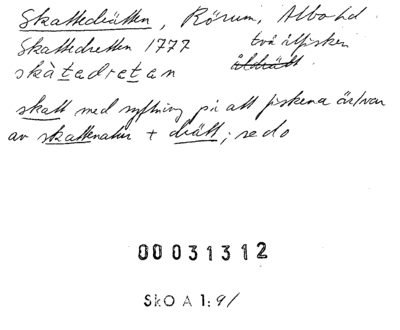 Skattedrätten, Rörum, Albo hd
Skattedretten 1777 två ålfisken
skàtadretan åldrätt
skatt med syftning på att fiskena är/var
av skattenatur + drätt; se do
00031312
SkO A 1:9/